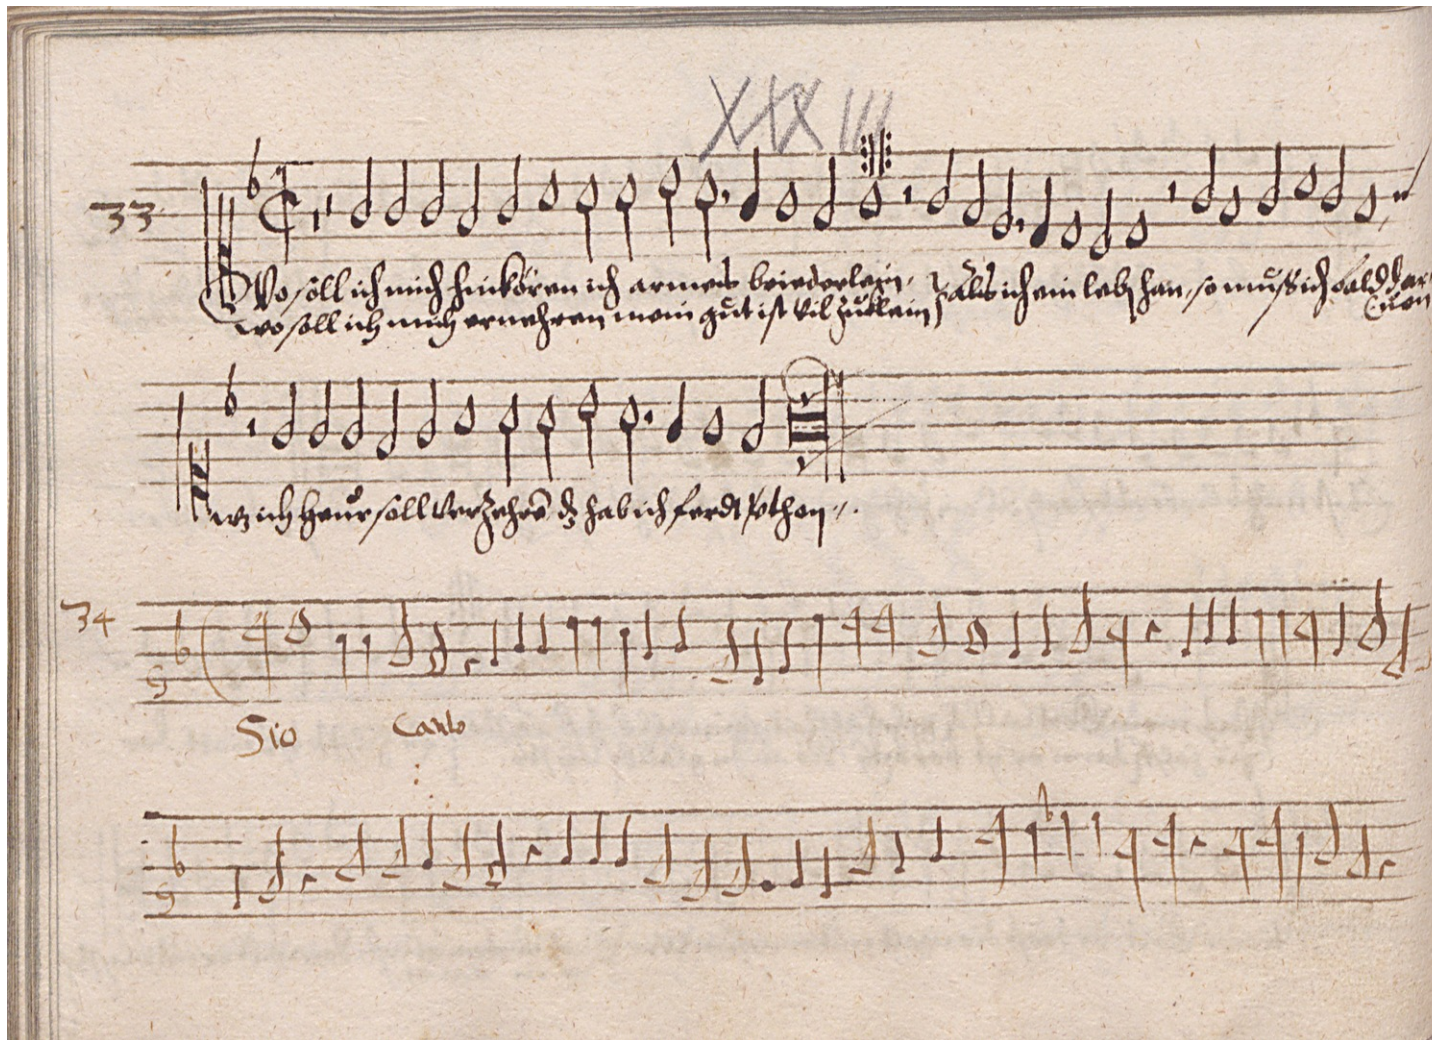 XXXIII
33
Wo soll ich mich hinkören ich armes briederlein, Als ich ein leb han, so muͦß ich bald dar
wo soll ich mich ernehren mein guͦt ist vil zuͦklein
wz ich heuͦr soll verzehrē dz hab ich ferdt
34
Sio Canto